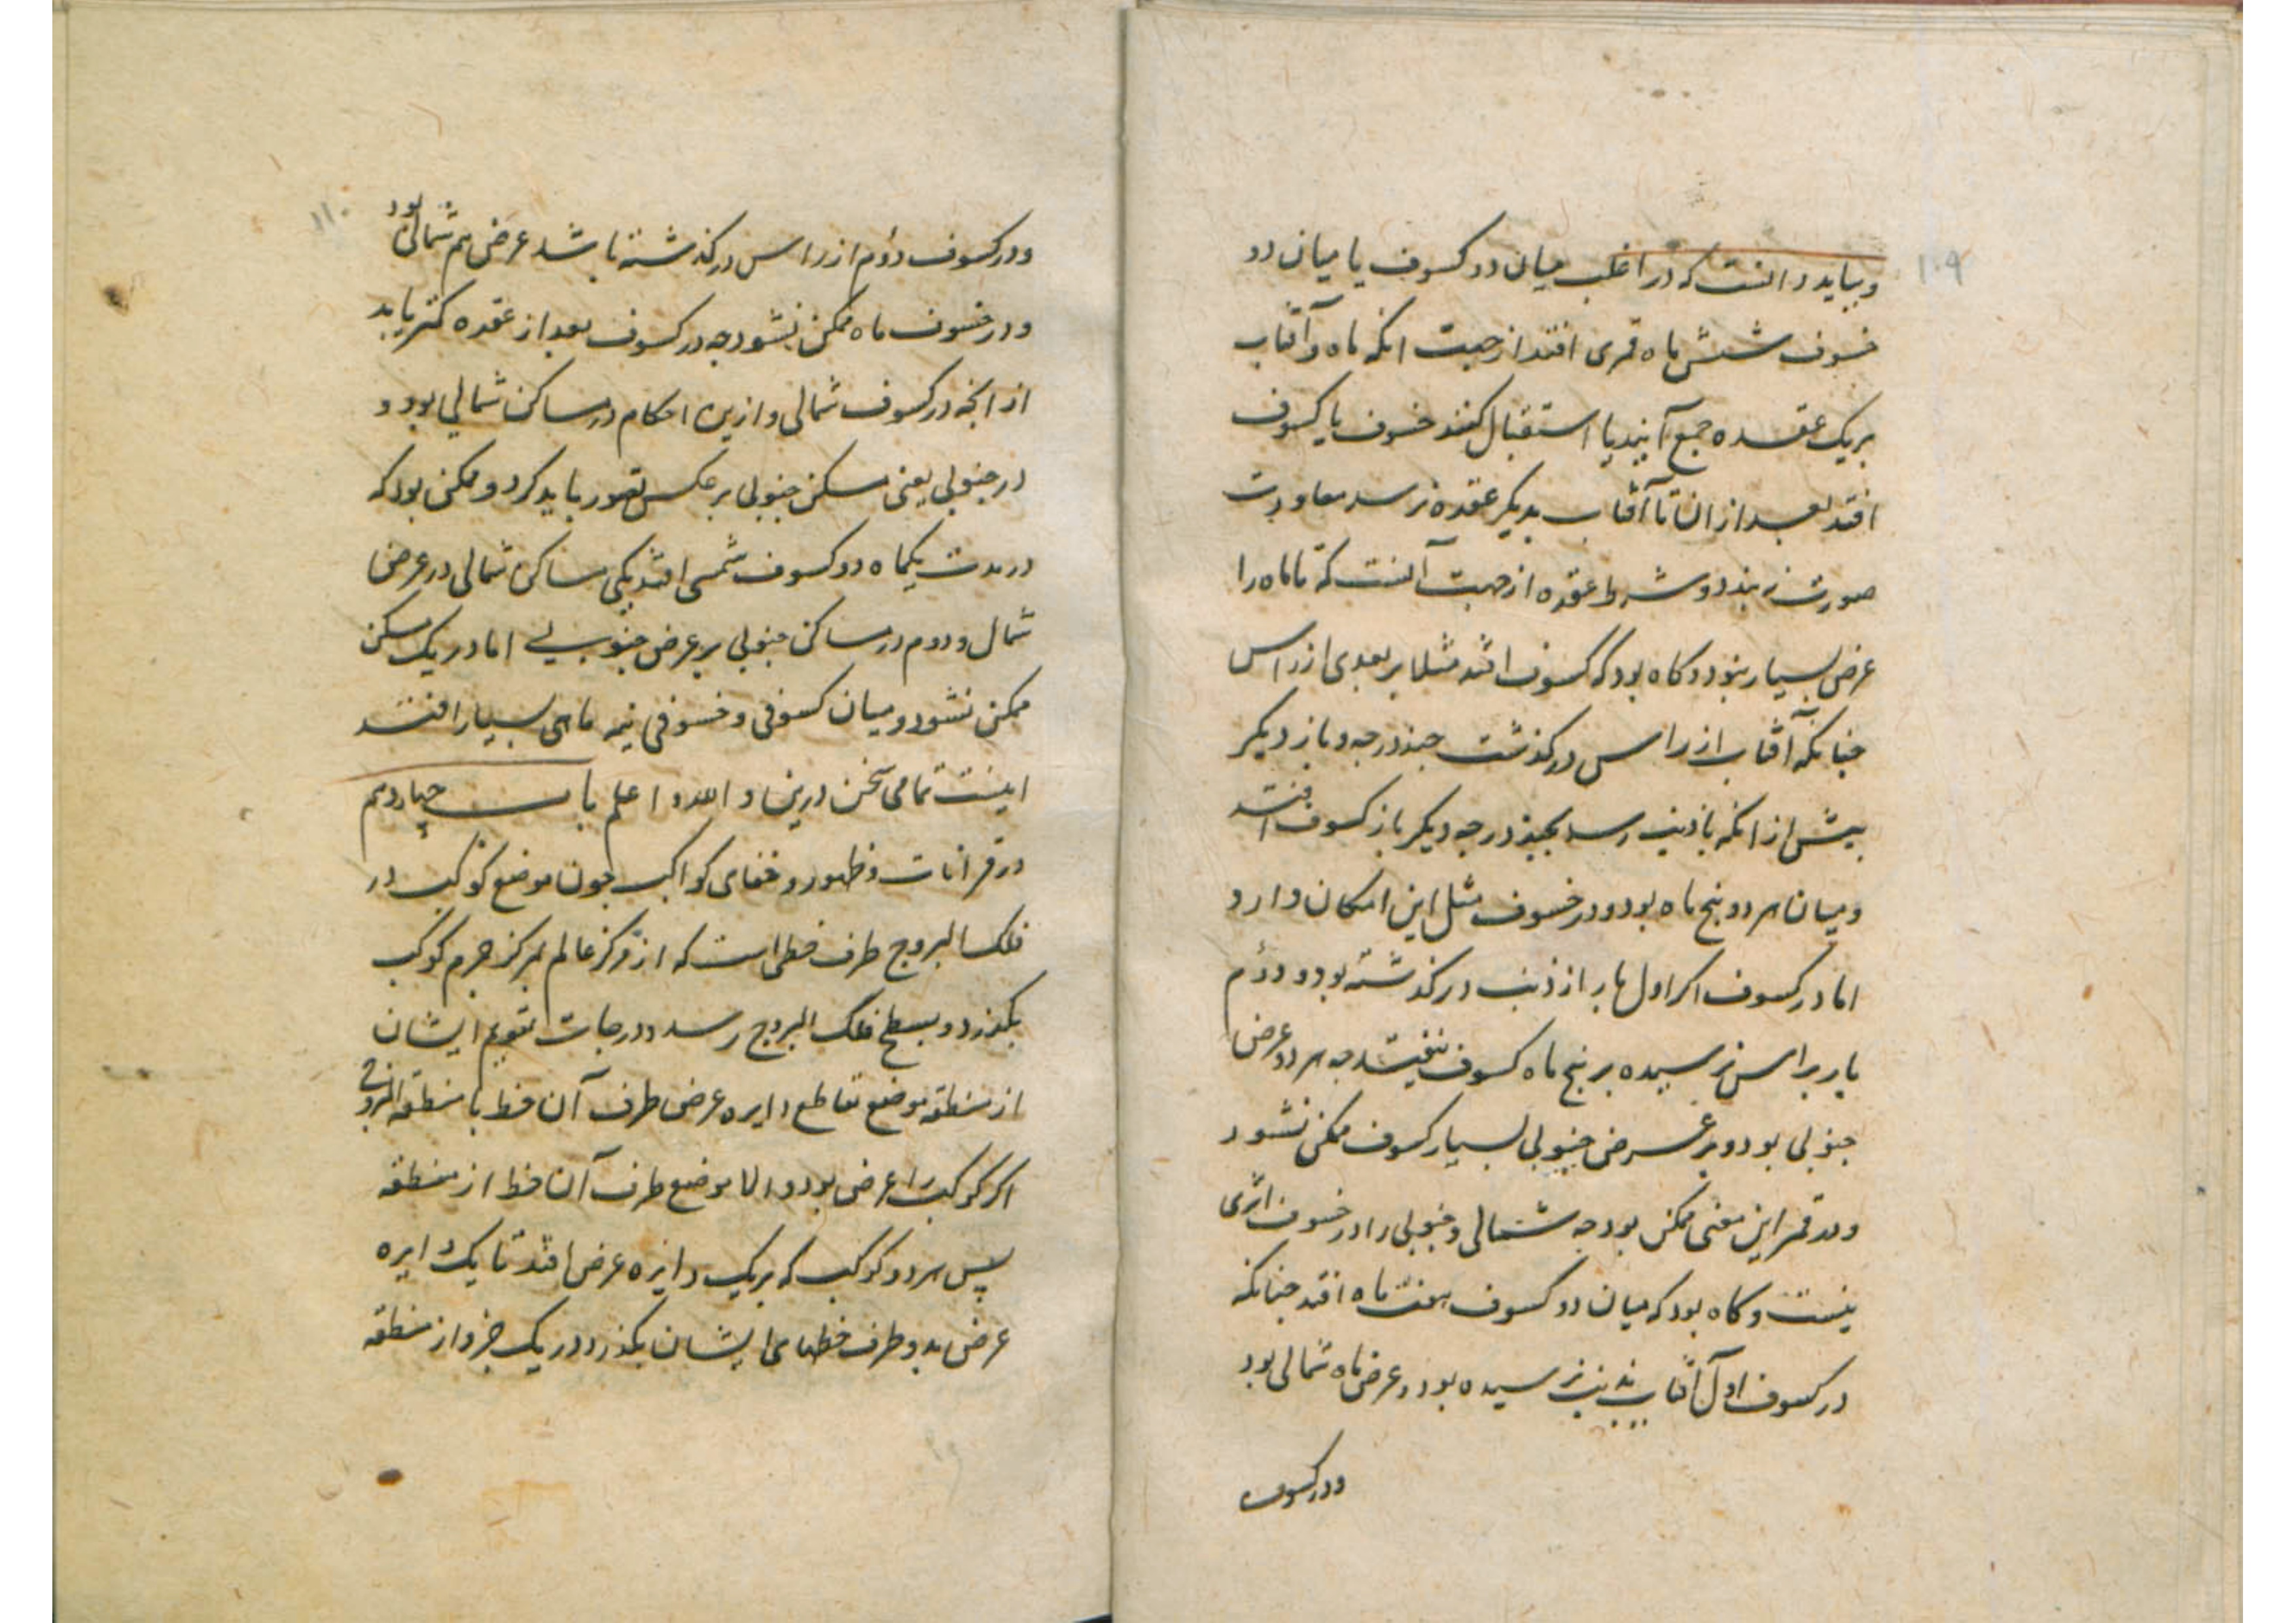 ۱۰۹
و بباید دانست که در اغلب میان دو کسوف یا میان دو
خسوف شش ماه قمری افتد از جهت انکه ماه و آفتاب
بریک عقده جمع آیند یا استقبال کنند خسوف یا کسوف
افتد بعد از ان تا آفتاب بدیکر عقده نرسد معاودت
صورت نبندد و شرط عقده از جهت آنست که تا ماه را
عرض بسیار نبود و کاه بود که کسوف افتد مثلا بر بعدی از راس
چنانکه آفتاب از راس درکذشت چند درجه و باز دیکر
بیش از انکه بذنب رسد بچند درجه دیکر باز کسوف افتد
و میان هر دو پنج ماه بود و در خسوف مثل این امکان دارد
اما در کسوف اکر اول بار از ذنب درکذشته بود و دوم
بار براس نرسیده بر پنج ماه کسوف نیفتد چه هر دو عرض
جنوبی بود و بر عرض جنوبی بسیار کسوف ممکن نشود
و در قمر این معنی ممکن بود چه شمالی و جنوبی را در خسوف اثری
نیست و کاه بود که میان دو کسوف هفت ماه افتد چنانکه
در کسوف اول آفتاب بذنب نرسیده بود و عرض ماه شمالی بود
و در کسوف
۱۱۰
و در کسوف دوم از راس درکذشته باشد عرض هم شمالی بود
و در خسوف ماه ممکن نشود چه در کسوف بعد از عقده کمتر باید
از انچه در کسوف شمالی و ازین احکام در مساکن شمالی بود و
در جنوبی یعنی مسکن جنوبی بر عکس تصور باید کرد و ممکن بود که
در مدت یکماه دو کسوف شمسی افتد یکی مساکن شمالی در عرض
شمال و دوم در مساکن جنوبی بر عرض جنوبی اما در یک مسکن
ممکن نشود و میان کسوفی و خسوفی نیمه ماهی بسیار افتد
اینست تمامی سخن درین و الله اعلم باب چهاردهم
در قرانات و ظهور و خفای کواکب چون موضع کوکب در
فلک البروج طرف خطی است که از مرکز عالم بمرکز جرم کوکب
بکذرد و بسطح فلک البروج رسد و درجات تقویم ایشان
از منطقه موضع تقاطع دایره عرض طرف آن خط با منطقه البروج
اکر کوکب را عرض بود و الا موضع طرف آن خط از منطقه
پس هر دو کوکب که بریک دایره عرض افتد تا یک دایره
عرض بدو طرف خطهای ایشان بکذرد در یک جزو از منطقه